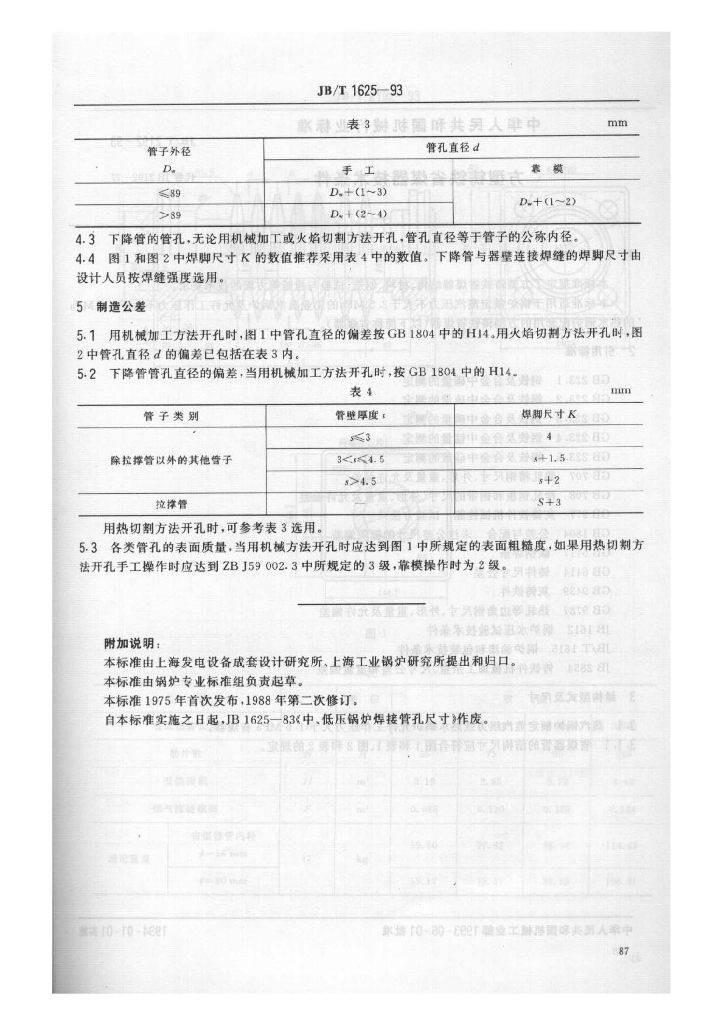 JB/T 1625—93
表 3
mm
管子外径
Dw
管孔直径 d
手 工
靠 模
≤89
Dw+(1~3)
Dw+(1~2)
>89
Dw+(2~4)
4.3 下降管的管孔,无论用机械加工或火焰切割方法开孔,管孔直径等于管子的公称内径。
4.4 图 1 和图 2 中焊脚尺寸 K 的数值推荐采用表 4 中的数值。下降管与器壁连接焊缝的焊脚尺寸由
设计人员按焊缝强度选用。
5 制造公差
5.1 用机械加工方法开孔时,图 1 中管孔直径的偏差按 GB 1804 中的 H14。用火焰切割方法开孔时,图
2 中管孔直径 d 的偏差已包括在表 3 内。
5.2 下降管管孔直径的偏差,当用机械加工方法开孔时,按 GB 1804 中的 H14。
表 4
mm
管 子 类 别
管壁厚度 s
焊脚尺寸 K
s≤3
4
除拉撑管以外的其他管子
3<s≤4.5
s+1.5
s>4.5
s+2
拉撑管
—
S+3
用热切割方法开孔时,可参考表 3 选用。
5.3 各类管孔的表面质量,当用机械方法开孔时应达到图 1 中所规定的表面粗糙度,如果用热切割方
法开孔手工操作时应达到 ZB J59 002.3 中所规定的 3 级,靠模操作时为 2 级。
附加说明:
本标准由上海发电设备成套设计研究所、上海工业锅炉研究所提出和归口。
本标准由锅炉专业标准组负责起草。
本标准 1975 年首次发布,1988 年第二次修订。
自本标准实施之日起,JB 1625—83《中、低压锅炉焊接管孔尺寸》作废。
87